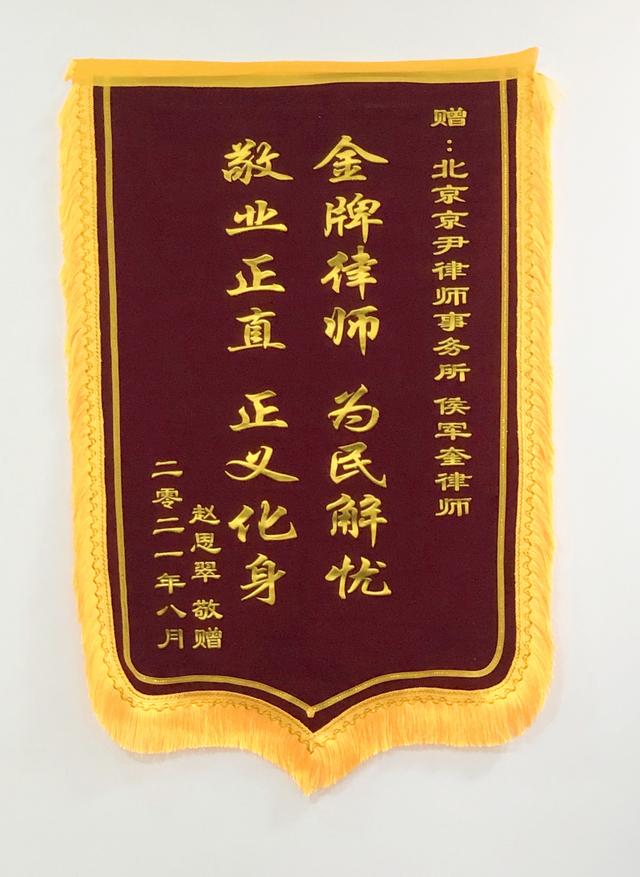 赠：北京京尹律师事务所 侯军奎律师
金牌律师 为民解忧
敬业正直 正义化身
赵恩翠 敬赠
二零二一年八月